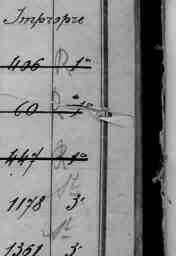 Impropre
436 R 1ª
60 R 1ª
447 R 1ª
1178 3ª
1351 3ª